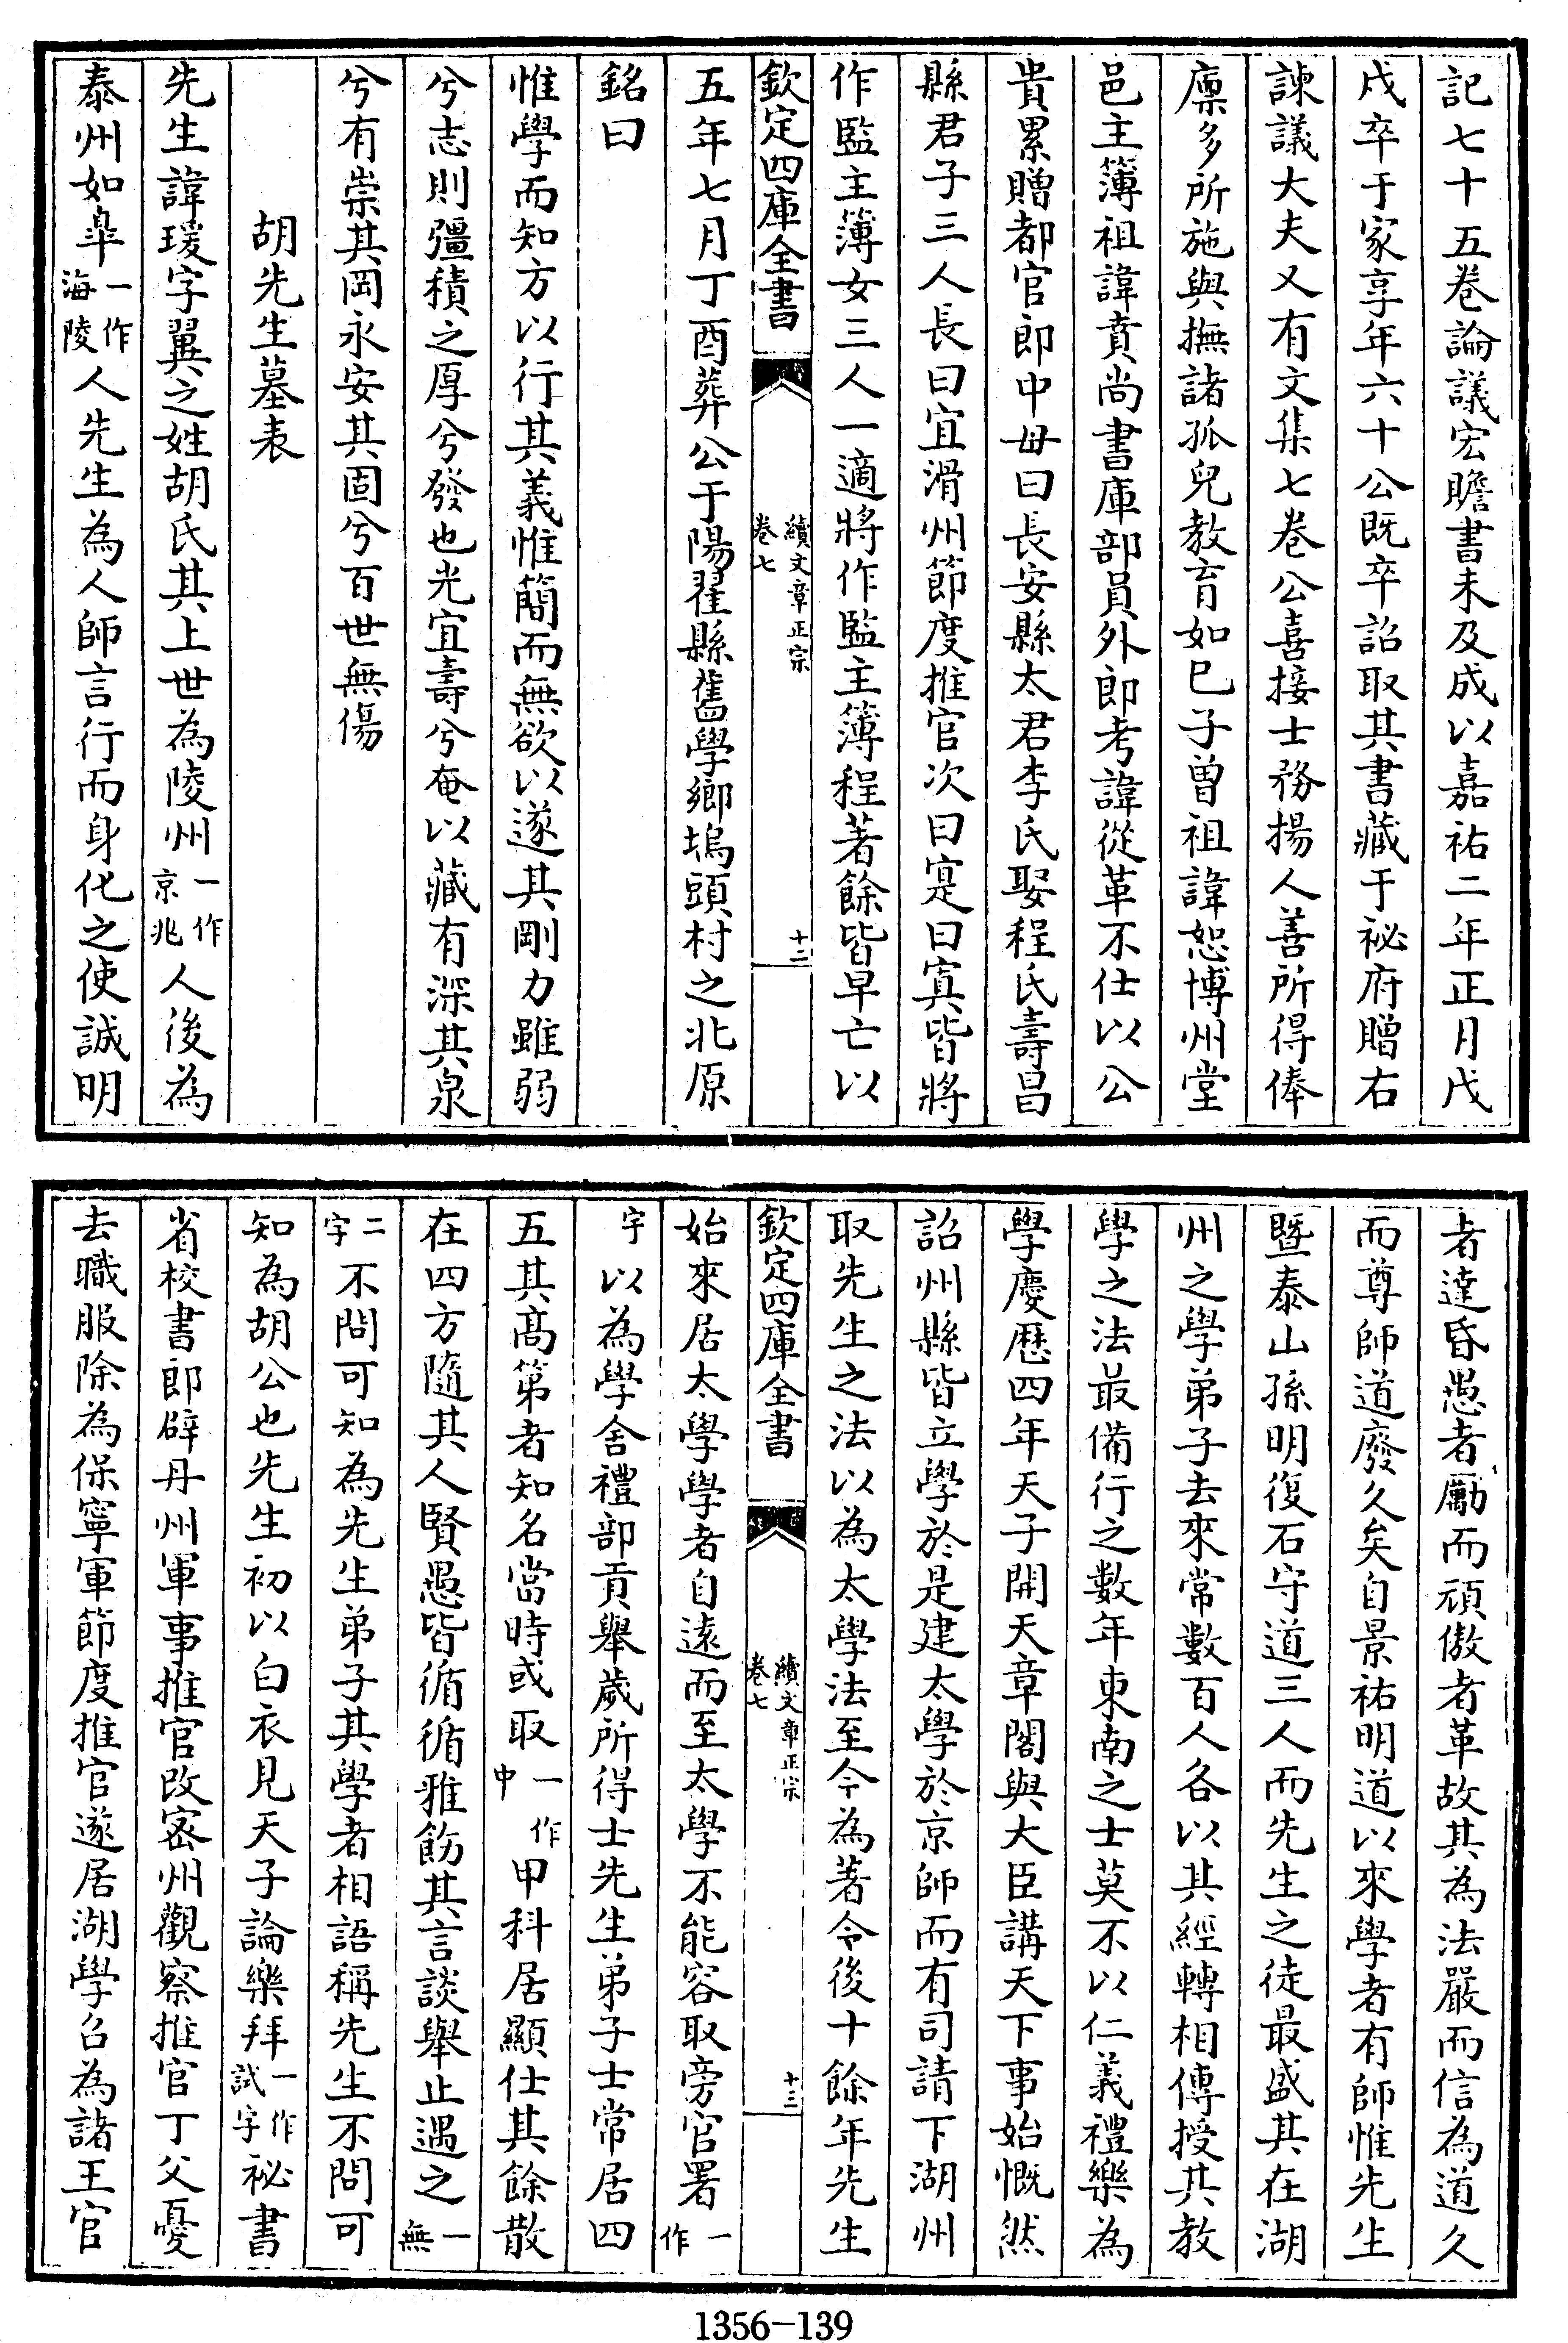 記七十五卷論議宏贍書未及成以嘉祐二年正月戊
戌卒于家享年六十公既卒詔取其書藏于祕府贈右
諫議大夫又有文集七卷公喜接士務揚人善所得俸
廪多所施與撫諸孤兒教育如己子曽祖諱恕博州堂
邑主簿祖諱賁尚書庫部員外郎考諱從革不仕以公
貴累贈都官郎中母曰長安縣太君李氏娶程氏壽昌
縣君子三人長曰宜滑州節度推官次曰寔曰寘皆將
作監主簿女三人一適將作監主簿程著餘皆早亡以
欽定四庫全書
續文章正宗
卷七
十二
五年七月丁酉葬公于陽翟縣舊學鄉塢頭村之北原
銘曰
惟學而知方以行其義惟簡而無欲以遂其剛力雖弱
兮志則彊積之厚兮發也光宜壽兮奄以藏有深其泉
兮有崇其岡永安其固兮百世無傷
胡先生墓表
先生諱瑗字翼之姓胡氏其上世為陵州一作京兆人後為
泰州如臯一作海陵人先生為人師言行而身化之使誠明
者達昏愚者勵而頑傲者革故其為法嚴而信為道久
而尊師道廢久矣自景祐明道以來學者有師惟先生
暨泰山孫明復石守道三人而先生之徒最盛其在湖
州之學弟子去來常數百人各以其經轉相傳授其教
學之法最備行之數年東南之士莫不以仁義禮樂為
學慶歴四年天子開天章閣與大臣講天下事始慨然
詔州縣皆立學於是建太學於京師而有司請下湖州
取先生之法以為太學法至今為著令後十餘年先生
欽定四庫全書
續文章正宗
卷七
十三
始來居太學學者自逺而至太學不能容取旁官署一作
宇以為學舍禮部貢舉歲所得士先生弟子士常居四
五其髙第者知名當時或取一作中甲科居顯仕其餘散
在四方隨其人賢愚皆循循雅飭其言談舉止遇之一無
二字不問可知為先生弟子其學者相語稱先生不問可
知為胡公也先生初以白衣見天子論樂拜一作試字祕書
省校書郎辟丹州軍事推官改密州觀察推官丁父憂
去職服除為保寧軍節度推官遂居湖學召為諸王官
1356-139